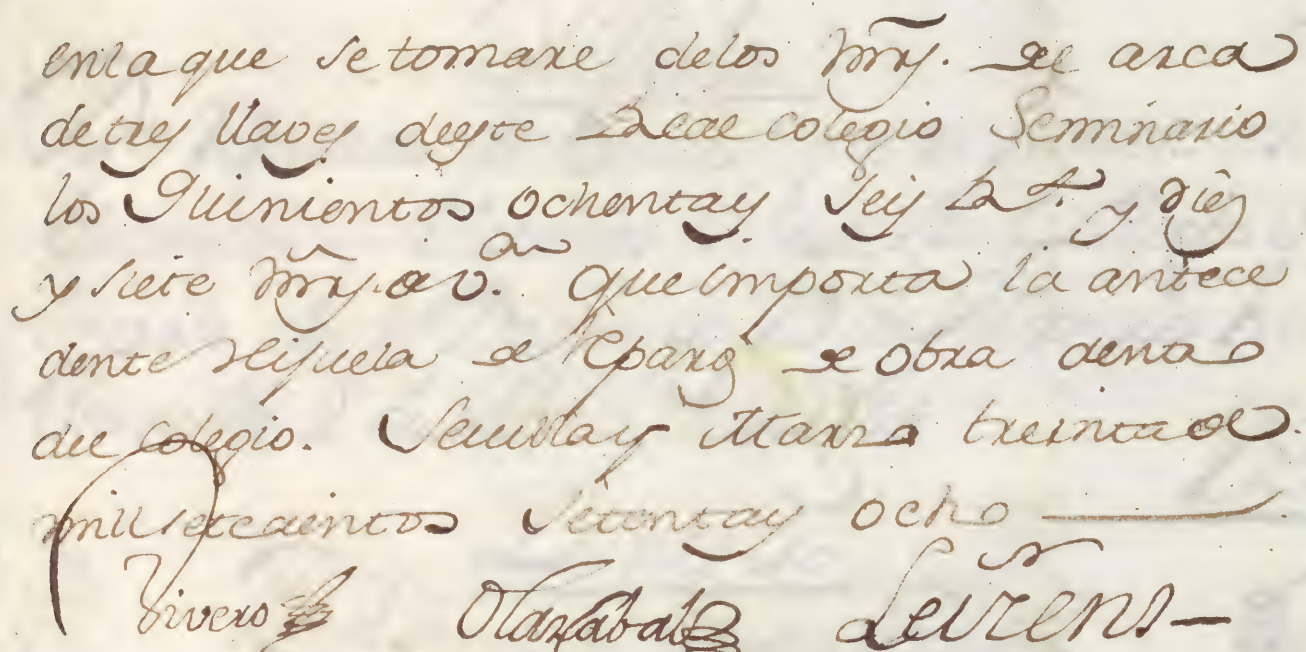 enla que se tomare delos mrs. de arca
de tres llaves deste Real Colegio Seminario
los Quinientos ochenta y seis Rs. y diez
y siete mrs. de vn. que importa la antece
dente Hijuela de Reparos de obra dentro
del Colegio. Sevilla y Marzo treinta de
mil setecientos setenta y ocho
Vivero Olazabal